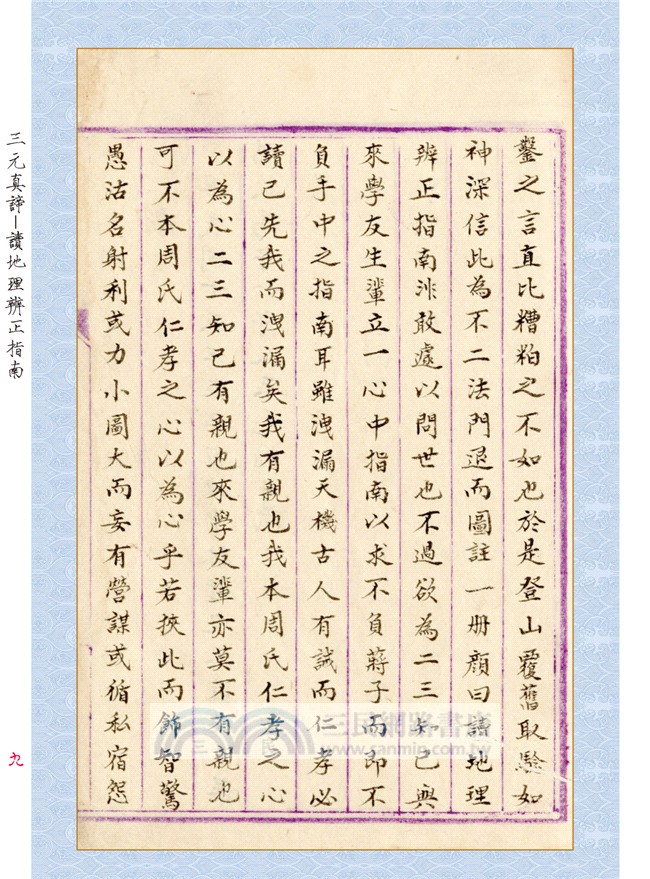 鑿之言直比糟粕之不如也於是登山覆舊取驗如
神深信此為不二法門退而圖註一册顏曰讀地理
辨正指南非敢遽以問世也不過欲為二三知己與
來學友生輩立一心中指南以求不負蔣子而即不
負手中之指南耳雖洩漏天機古人有誡而仁孝必
讀已先我而洩漏矣我有親也我本周氏仁孝之心
以為心二三知己有親也來學友輩亦莫不有親也
可不本周氏仁孝之心以為心乎若挾此而飾智驚
愚沽名射利或力小圖大而妄有營謀或循私宿怨
三元真諦—讀地理辨正指南
九
三民網路書店
www.sanmin.com.tw